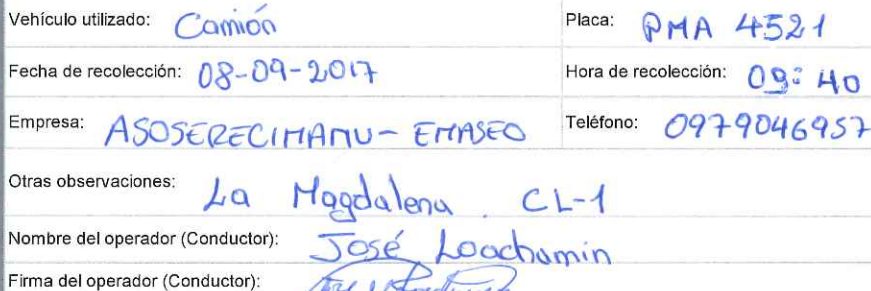 Vehículo utilizado: Camión Placa: PMA 4521
Fecha de recolección: 08-09-2017 Hora de recolección: 09:40
Empresa: ASOSERECIMANU-EMASEO Teléfono: 0979046957
Otras observaciones: La Magdalena. CL-1
Nombre del operador (Conductor): José Loachamin
Firma del operador (Conductor):